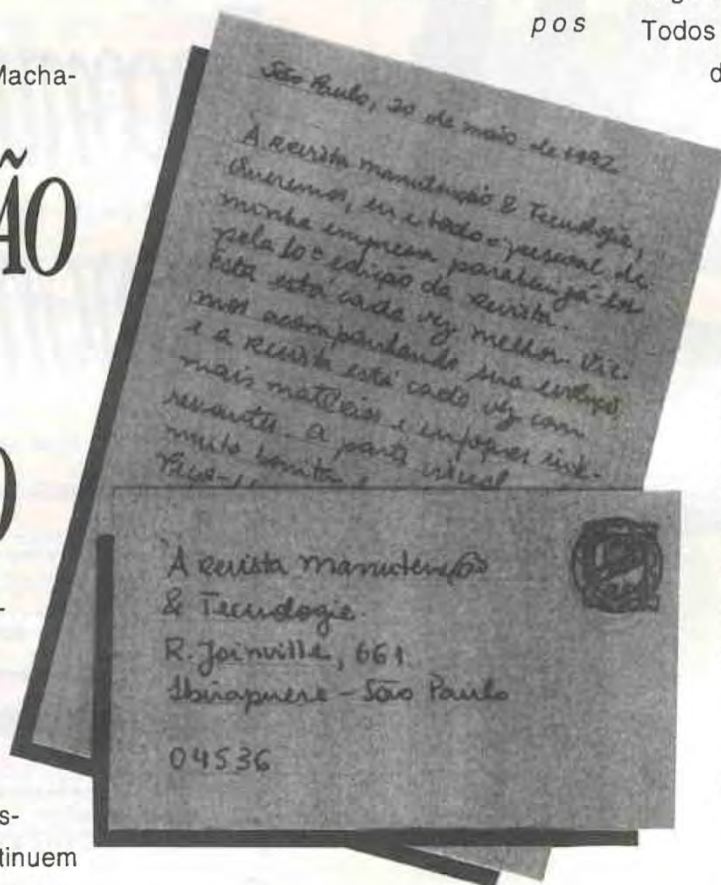 pos
Todos
d
Macha-
ÃO
s-
tinuem
São Paulo, 20 de maio de 1992
À revista manutenção & Tecnologia,
Queremos, eu e todo o pessoal de
minha empresa parabenizá-los
pela 10ª edição da revista.
Esta está cada vez melhor. Vie-
mos acompanhando sua evolução
e a revista está cada vez com
mais matérias e enfoques inte-
ressantes. a parte visual
muito bonita
À revista manutenção
& Tecnologia.
R. Joinville, 661
Ibirapuera - São Paulo
04536